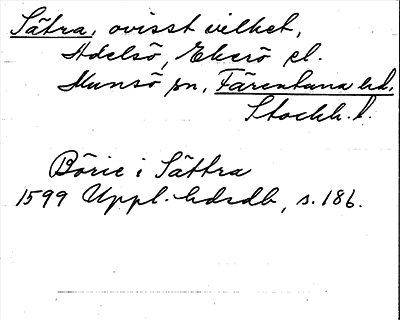 Sätra, ovisst vilket,
Adelsö, Ekerö el.
Munsö sn, Färentuna hd,
Stockh. l.
Börie i Sättra
1599 Uppl. hdrdb, s. 186.